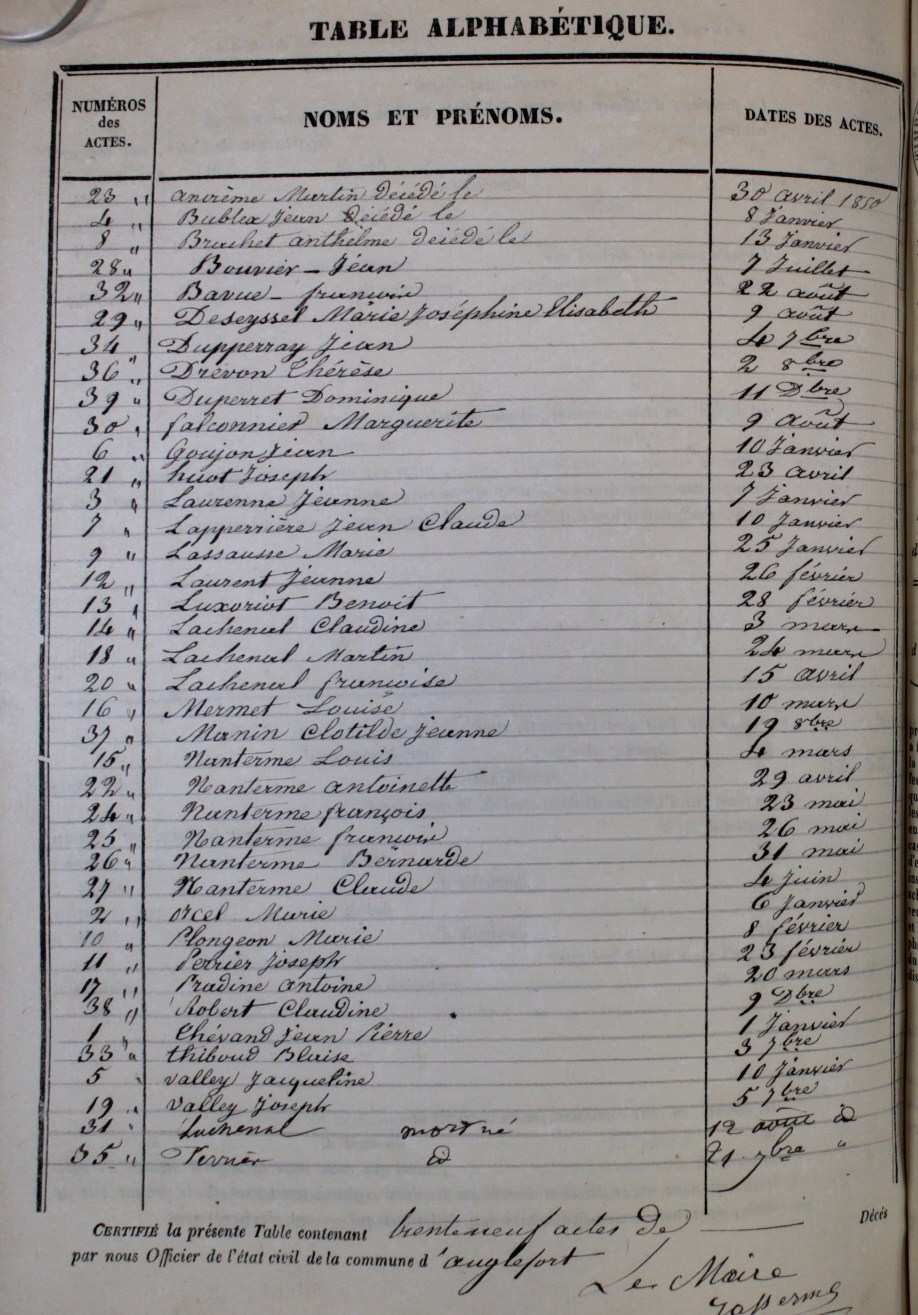 TABLE ALPHABÉTIQUE.
NUMÉROS des ACTES. NOMS ET PRÉNOMS. DATES DES ACTES.
23 " Ancrème Martin décédé le 30 avril 1850
4 " Bublex Jean décédé le 8 Janvier
8 " Brachet anthelme décédé le 13 Janvier
28 " Bouvier - Jean 7 Juillet
32 " Bavue - françois 22 août
29 " Deseyssel Marie Joséphine Elisabeth 9 août
34 " Dupperray Jean 4 7bre
36 " Drevon Thérèse 2 8bre
39 " Duperret Dominique 11 Dbre
30 " falconnier Marguerite 9 août
6 " Goujon Jean 10 Janvier
21 " huot Joseph 23 avril
3 " Laurenne Jeanne 7 Janvier
7 " Lapperrière Jean Claude 10 Janvier
9 " Lassausse Marie 25 Janvier
12 " Laurent Jeanne 26 février
13 " Luxoriot Benoit 28 février
14 " Lachenal Claudine 3 mars
18 " Lachenal Martin 24 mars
20 " Lachenal françoise 15 avril
16 " Mermet Louise 10 mars
37 " Manin Clotilde Jeanne 19 8bre
15 " Nanterme Louis 4 mars
22 " Nanterme antoinette 29 avril
24 " Nanterme françois 23 mai
25 " Nanterme françois 26 mai
26 " Nanterme Bernarde 31 mai
27 " Nanterme Claude 4 Juin
2 " orcel Marie 6 Janvier
10 " Plongeon Marie 8 février
11 " Perrier Joseph 23 février
17 " Pradine antoine 20 mars
38 " Robert Claudine 9 Dbre
1 " Thévand Jean Pierre 1 Janvier
33 " thiboud Blaise 3 7bre
5 " valley Jacqueline 10 Janvier
19 " valley Joseph 5 7bre
31 " Lachenal mort né 12 août id
35 " id 21 7bre "
CERTIFIÉ la présente Table contenant trente neuf actes de Décès
par nous Officier de l'état civil de la commune d'anglefort
Le Maire